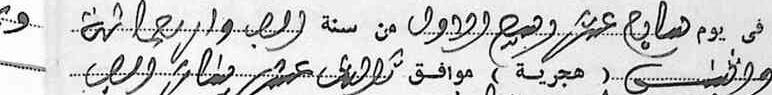 فى يوم سابع عشر ربيع الاول من سنة الف واربعمائة
واثنى ( هجرية ) موافق ثالث عشر يناير الف